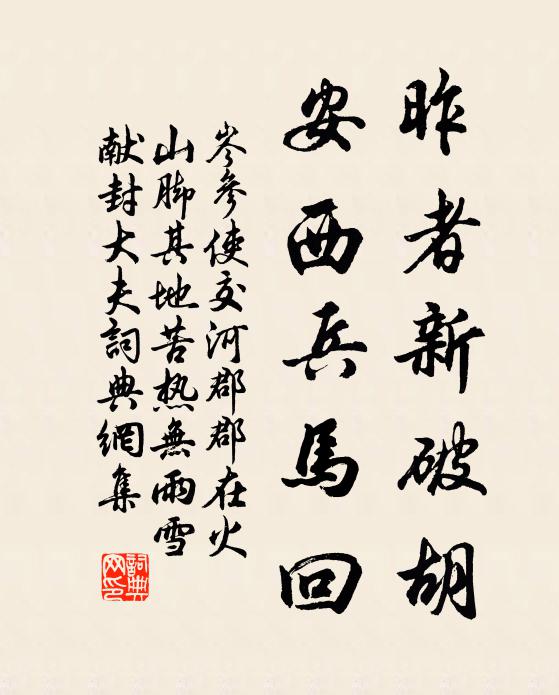 昨者新破胡
安西兵馬回
岑參使交河郡郡在火
山脚其地苦热無雨雪
献封大夫詞典網集
詞典
网印